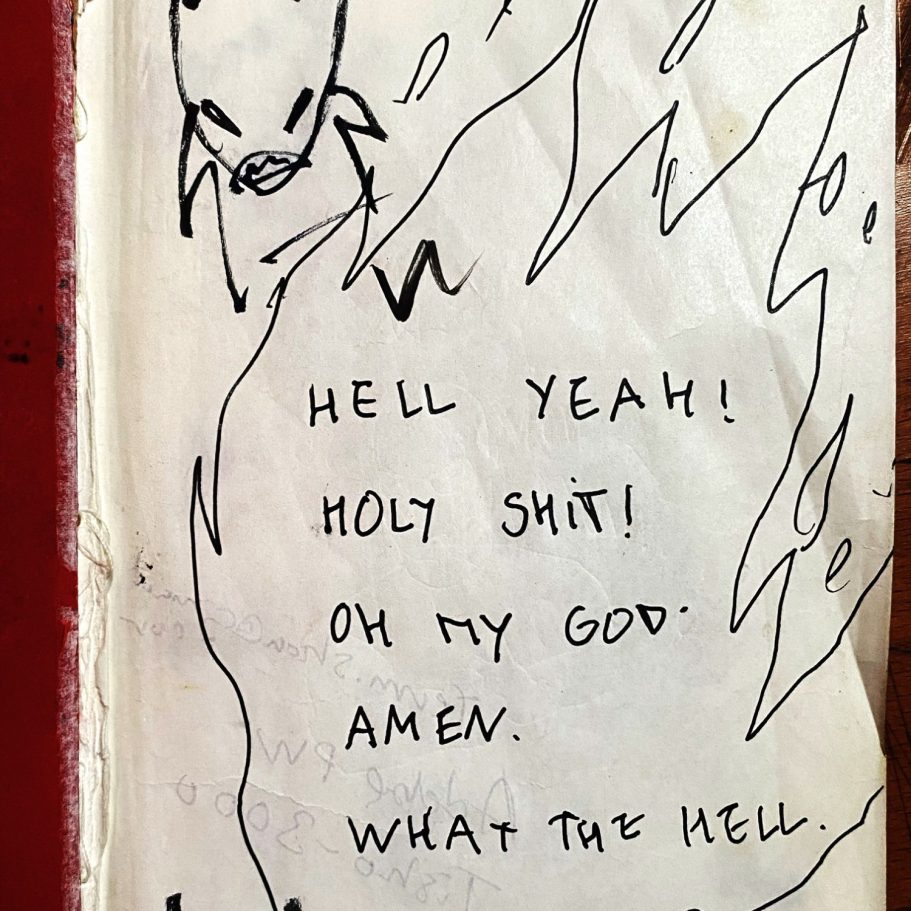 HELL YEAH!
HOLY SHiT!
OH MY GOD.
AMEN.
WHAT THE HELL.